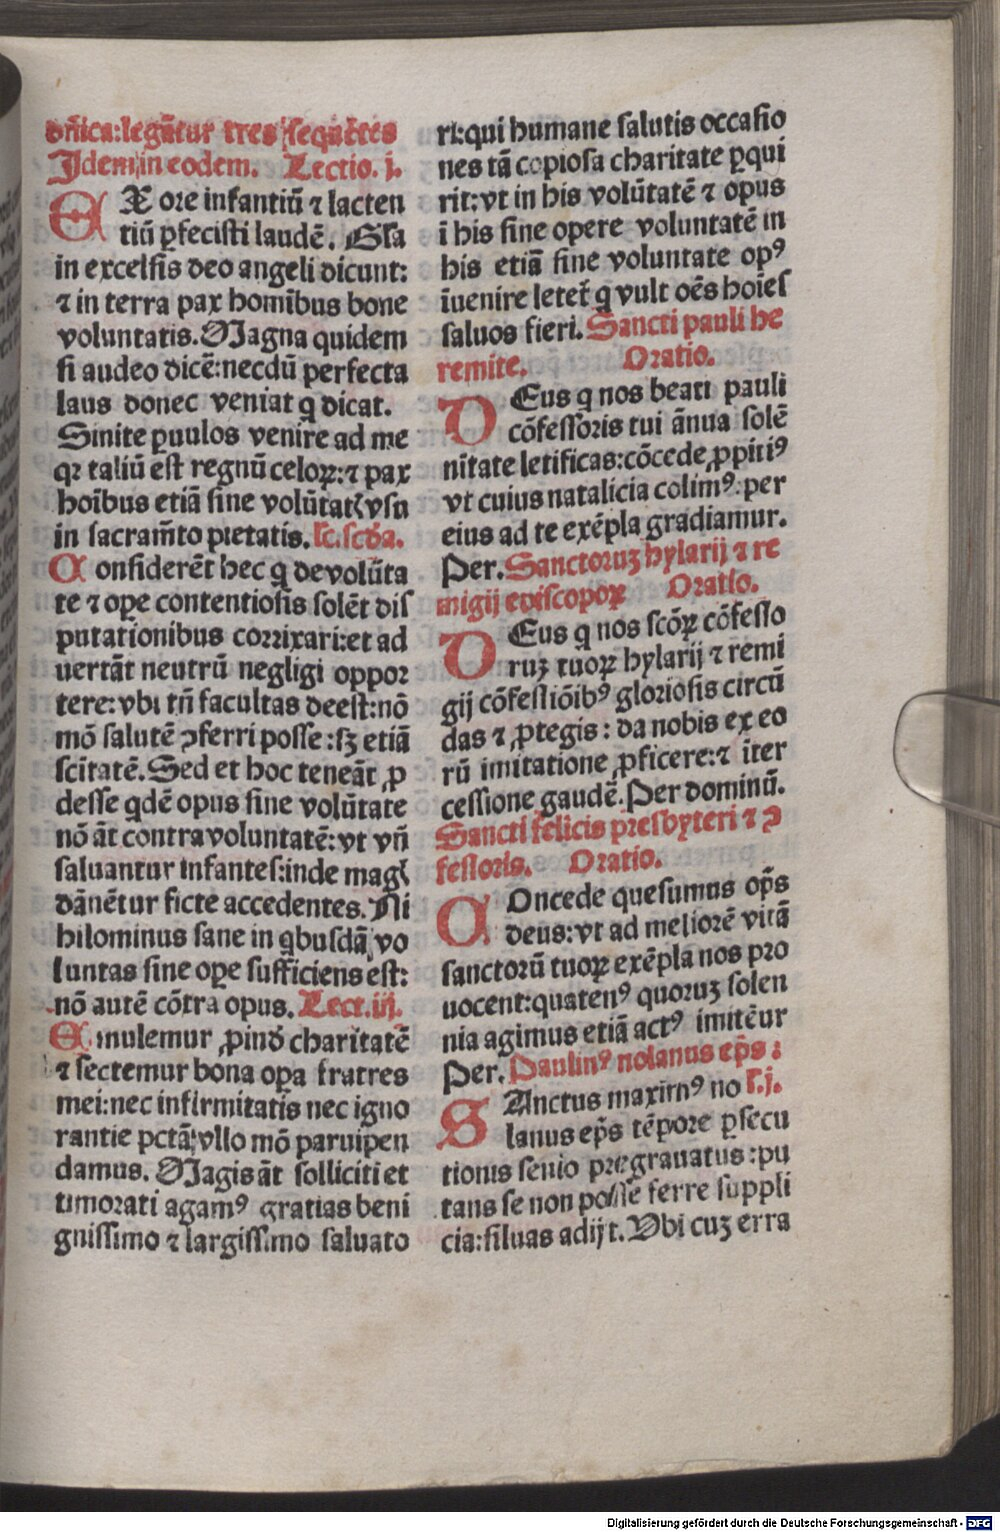 dn̄ica:legūtur tres sequētes
Idem in eodem. Lectio. j.
EX ore infantiū ⁊ lacten
tiū ꝑfecisti laudē. Glīa
in excelsis deo angeli dicunt:
⁊ in terra pax homībus bone
voluntatis. Magna quidem
si audeo dicē:necdū perfecta
laus donec veniat q̄ dicat.
Sinite ꝑuulos venire ad me
qꝛ taliū est regnū celoꝝ:⁊ pax
hoībus etiā sine volūtatꝭ vsu
in sacram̄to pietatis. lc̄.scd̄a.
Considerēt hec q̄ de volūta
te ⁊ oꝑe contentiosis solēt dis
putationibus corrixari:et ad
uertāt neutrū negligi oppor
tere:vbi tn̄ facultas deest:nō
mō salutē ꝯferri posse:sꝫ etiā
scītatē. Sed et hoc teneāt ꝓ
desse q̇dē opus sine volūtate
nō āt contra voluntatē:vt vn̄
saluantur infantes:inde magꝭ
dānētur ficte accedentes. Ni
hilominus sane in q̇busdā vo
luntas sine oꝑe sufficiens est:
nō autē cōtra opus. Lect.iij.
Emulemur ꝓind̄ charitatē
⁊ sectemur bona oꝑa fratres
mei:nec infirmitatis nec igno
rantie pctā vllo mō paruipen
damus. Magis āt solliciti et
timorati agamꝰ gratias beni
gnissimo ⁊ largissimo saluato
ri:qui humane salutis occasio
nes tā copiosa charitate ꝑqui
rit:vt in his volūtatē ⁊ opus
ī his sine opere voluntatē in
his etiā sine voluntate opꝰ
īuenire letet̄ q̇ vult oēs hoīes
saluos fieri. Sancti pauli he
remite. Oratio.
DEus q̇ nos beati pauli
cōfessoris tui ānua solē
nitate letificas:cōcede ꝓpitiꝰ
vt cuius natalicia colimꝰ:per
eius ad te exēpla gradiamur.
Per. Sanctoruꝫ hylarij ⁊ re
migij episcopoꝝ Oratio.
DEus q̇ nos scōꝝ cōfesso
ruꝫ tuoꝝ hylarij ⁊ remi
gij cōfessiōibꝰ gloriosis circū
das ⁊ ꝓtegis: da nobis ex eo
rū imitatione ꝓficere:⁊ īter
cessione gaudē. Per dominū.
Sancti felicis presbyteri ⁊ ꝯ
fessoris. Oratio.
COncede quesumus op̄s
deus:vt ad meliorē vitā
sanctorū tuoꝝ exēpla nos pro
uocent:quatenꝰ quoruꝫ solen
nia agimus etiā actꝰ imitēur
Per. Paulinꝰ nolanus ep̄s ⁊
SAnctus maximꝰ no l.j.
lanus ep̄s tēpore ꝑsecu
tionis senio pregrauatus:pu
tans se non posse ferre suppli
cia:siluas adijt. Vbi cuꝫ erra
Digitalisierung gefördert durch die Deutsche Forschungsgemeinschaft - DFG